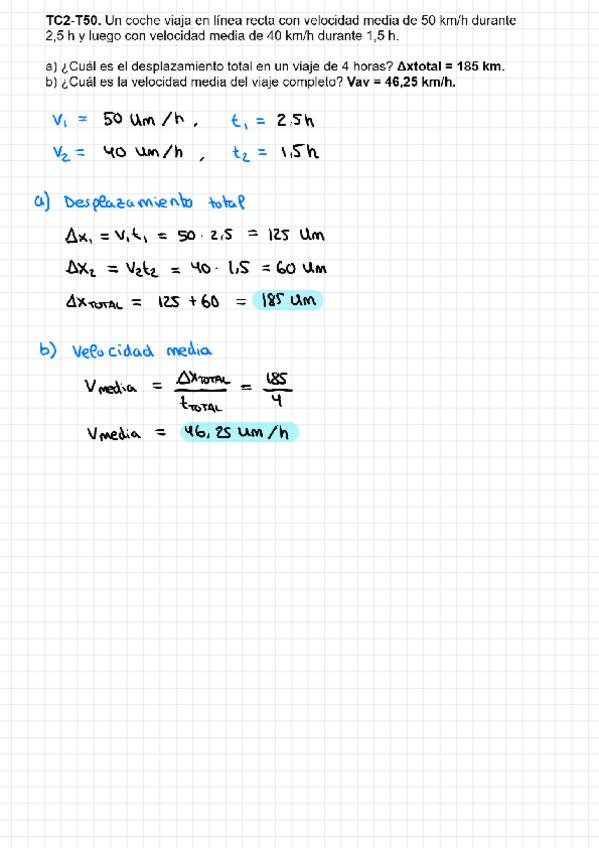 TC2-T50. Un coche viaja en línea recta con velocidad media de 50 km/h durante
2,5 h y luego con velocidad media de 40 km/h durante 1,5 h.
a) ¿Cuál es el desplazamiento total en un viaje de 4 horas? Δxtotal = 185 km.
b) ¿Cuál es la velocidad media del viaje completo? Vav = 46,25 km/h.
V₁ = 50 km/h, t₁ = 2.5h
V₂ = 40 km/h, t₂ = 1,5h
a) Desplazamiento total
Δx₁ = V₁t₁ = 50 · 2,5 = 125 km
Δx₂ = V₂t₂ = 40 · 1,5 = 60 km
ΔxTOTAL = 125 + 60 = 185 km
b) Velocidad media
Vmedia = ΔxTOTAL / tTOTAL = 185 / 4
Vmedia = 46,25 km/h